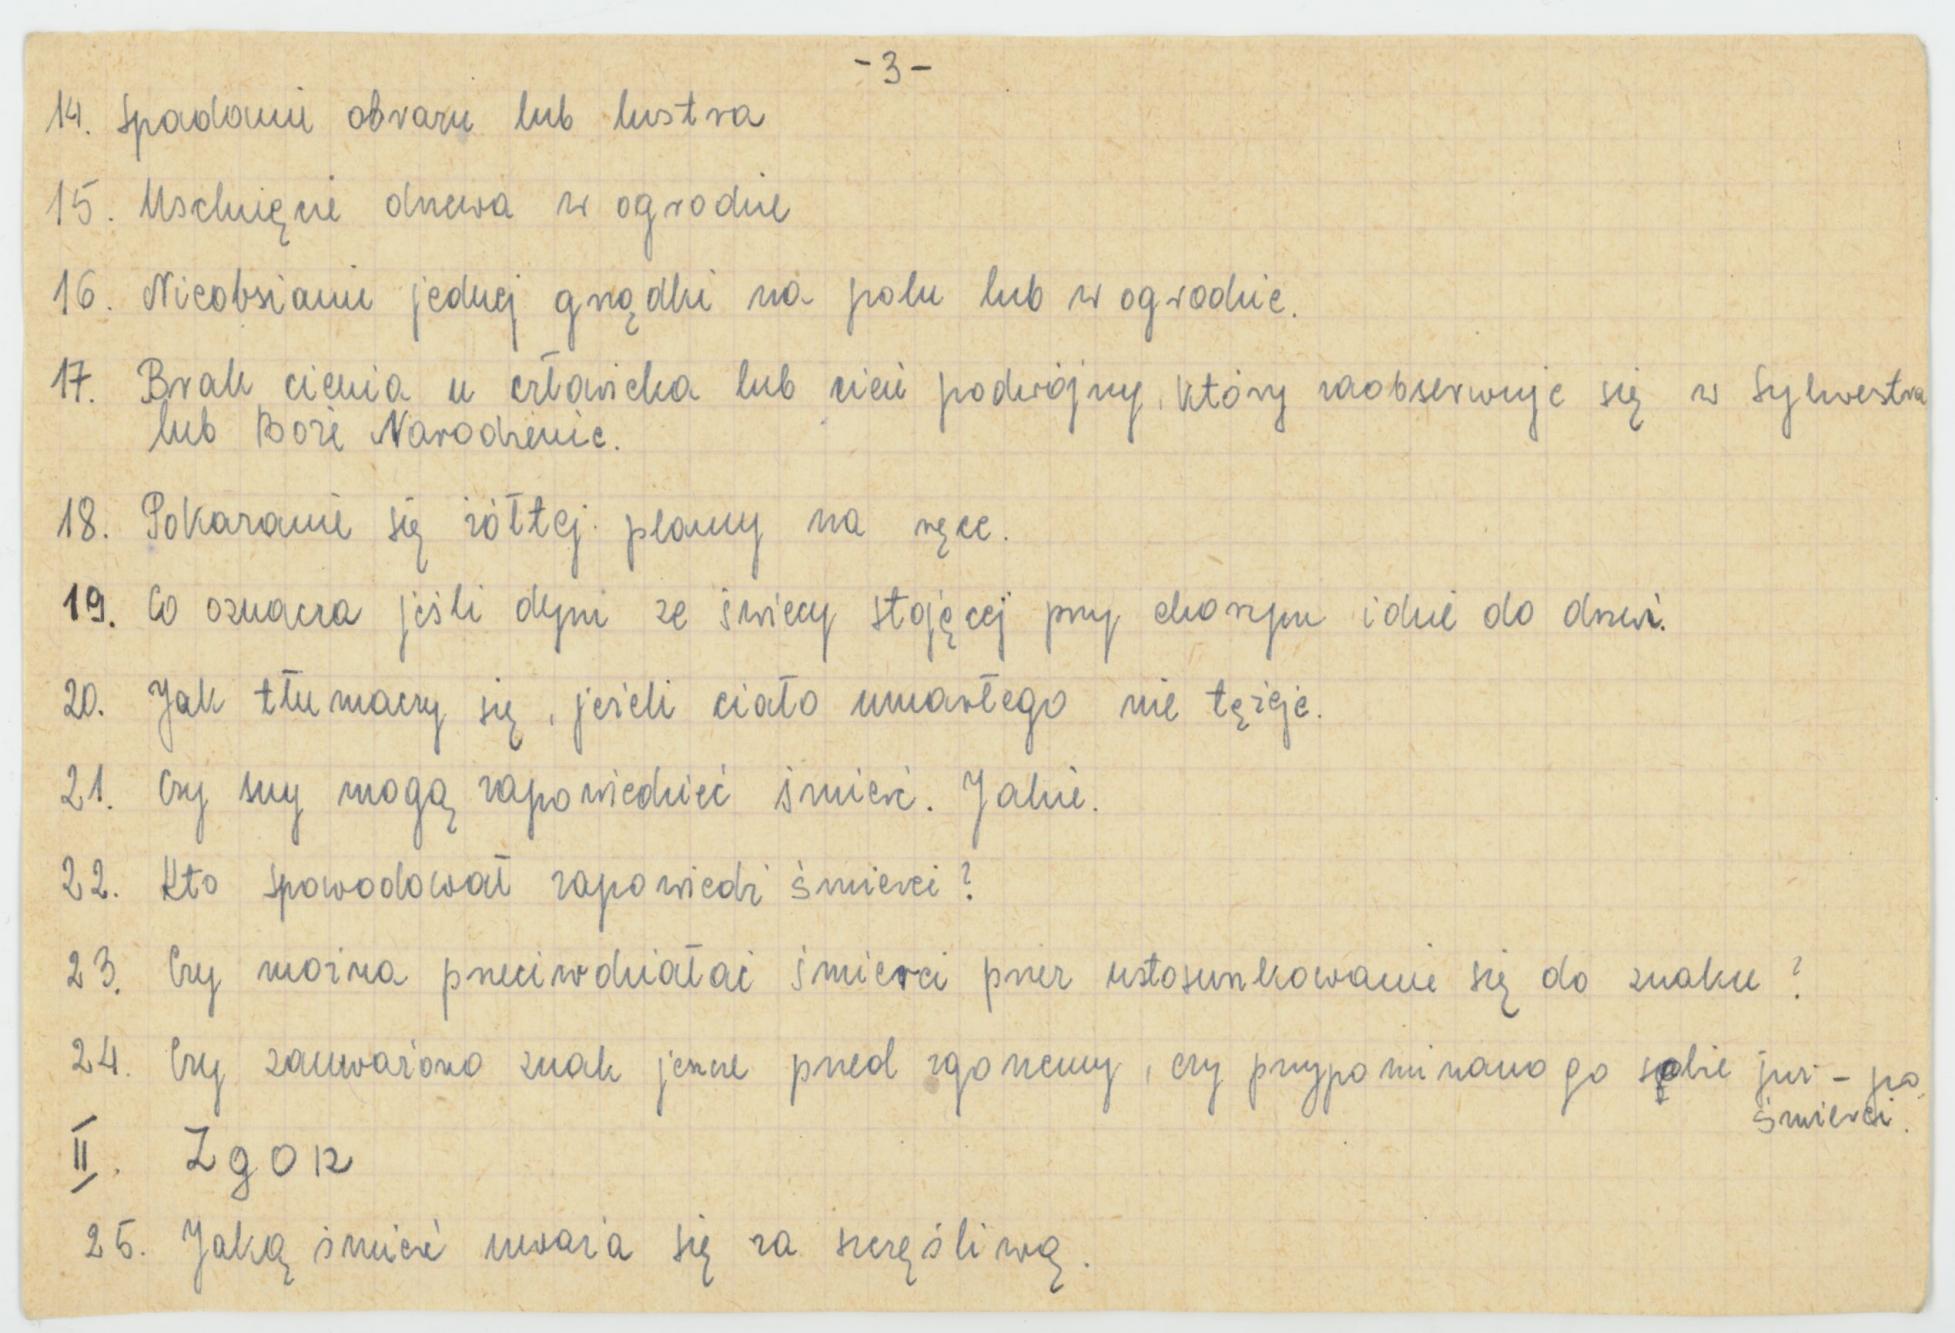 - 3 -
14. Spadanie obrazu lub lustra
15. Uschnięcie drzewa w ogrodzie
16. Nieobsianie jednej grządki na polu lub w ogrodzie.
17. Brak cienia u człowieka lub cień podwójny, który zaobserwuje się w Sylwestra
lub Boże Narodzenie.
18. Pokazanie się żółtej plamy na ręce.
19. Co oznacza jeśli dym ze świecy stojącej przy chorym idzie do drzwi.
20. Jak tłumaczy się, jeżeli ciało umarłego nie tężeje.
21. Czy sny mogą zapowiedzieć śmierć. Jakie.
22. Kto spowodował zapowiedź śmierci?
23. Czy można przeciwdziałać śmierci przez ustosunkowanie się do znaku?
24. Czy zauważono znak jeszcze przed zgonem, czy przypominano go sobie już - po
śmierci.
II. Zgon
25. Jaką śmierć uważa się za szczęśliwą.